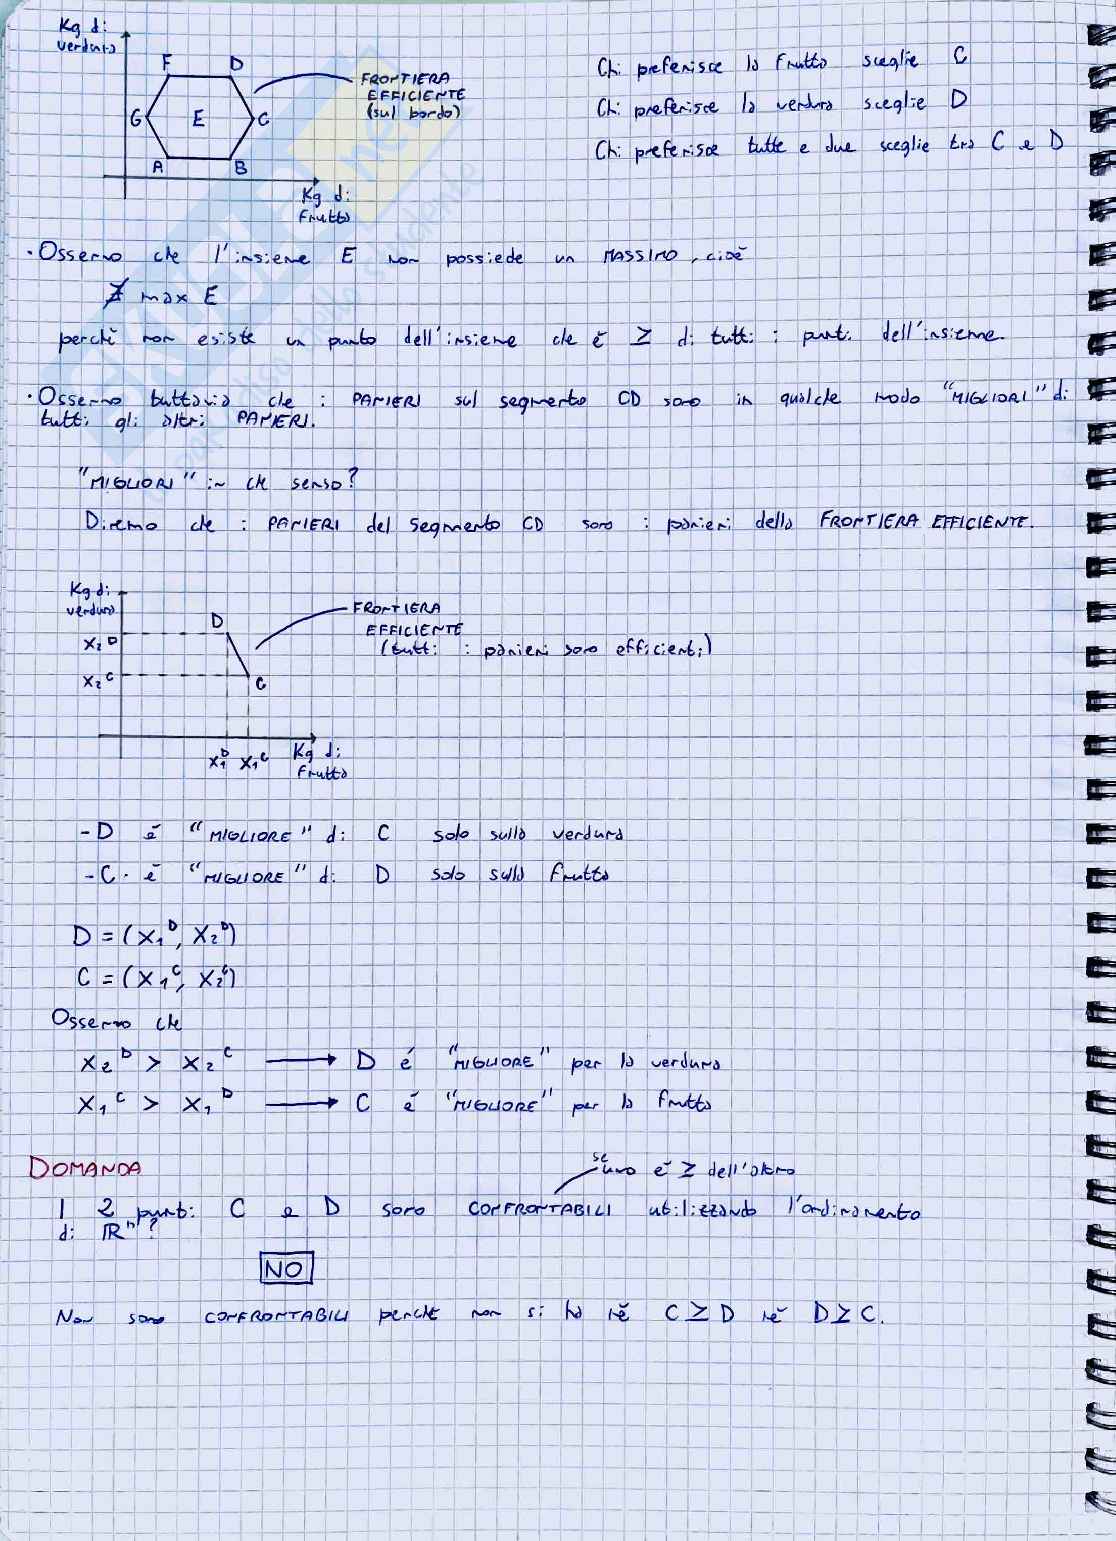 Kg di
verdura
F D
FRONTIERA
EFFICIENTE
(sul bordo)
G E C
A B
Kg di
frutta
Chi preferisce la frutta sceglie C
Chi preferisce la verdura sceglie D
Chi preferisce tutte e due sceglie tra C e D
· Osservo che l'insieme E non possiede un MASSIMO, cioè
∄ max E
perché non esiste un punto dell'insieme che è ≥ di tutti i punti dell'insieme.
· Osservo tuttavia che i PANIERI sul segmento CD sono in qualche modo "MIGLIORI" di
tutti gli altri PANIERI.
"MIGLIORI" in che senso?
Diremo che i PANIERI del segmento CD sono i panieri della FRONTIERA EFFICIENTE.
Kg di
verdura
FRONTIERA
EFFICIENTE
(tutti i panieri sono efficienti)
D
X₂ᴰ
X₂ᶜ
C
X₁ᴰ X₁ᶜ
Kg di
frutta
- D è "MIGLIORE" di C solo sulla verdura
- C è "MIGLIORE" di D solo sulla frutta
D = (X₁ᴰ, X₂ᴰ)
C = (X₁ᶜ, X₂ᶜ)
Osservo che
X₂ᴰ > X₂ᶜ → D è "MIGLIORE" per la verdura
X₁ᶜ > X₁ᴰ → C è "MIGLIORE" per la frutta
DOMANDA
se uno è ≥ dell'altro
I 2 punti C e D sono CONFRONTABILI utilizzando l'ordinamento
di ℝⁿ?
NO
Non sono CONFRONTABILI perché non si ha né C ≥ D né D ≥ C.